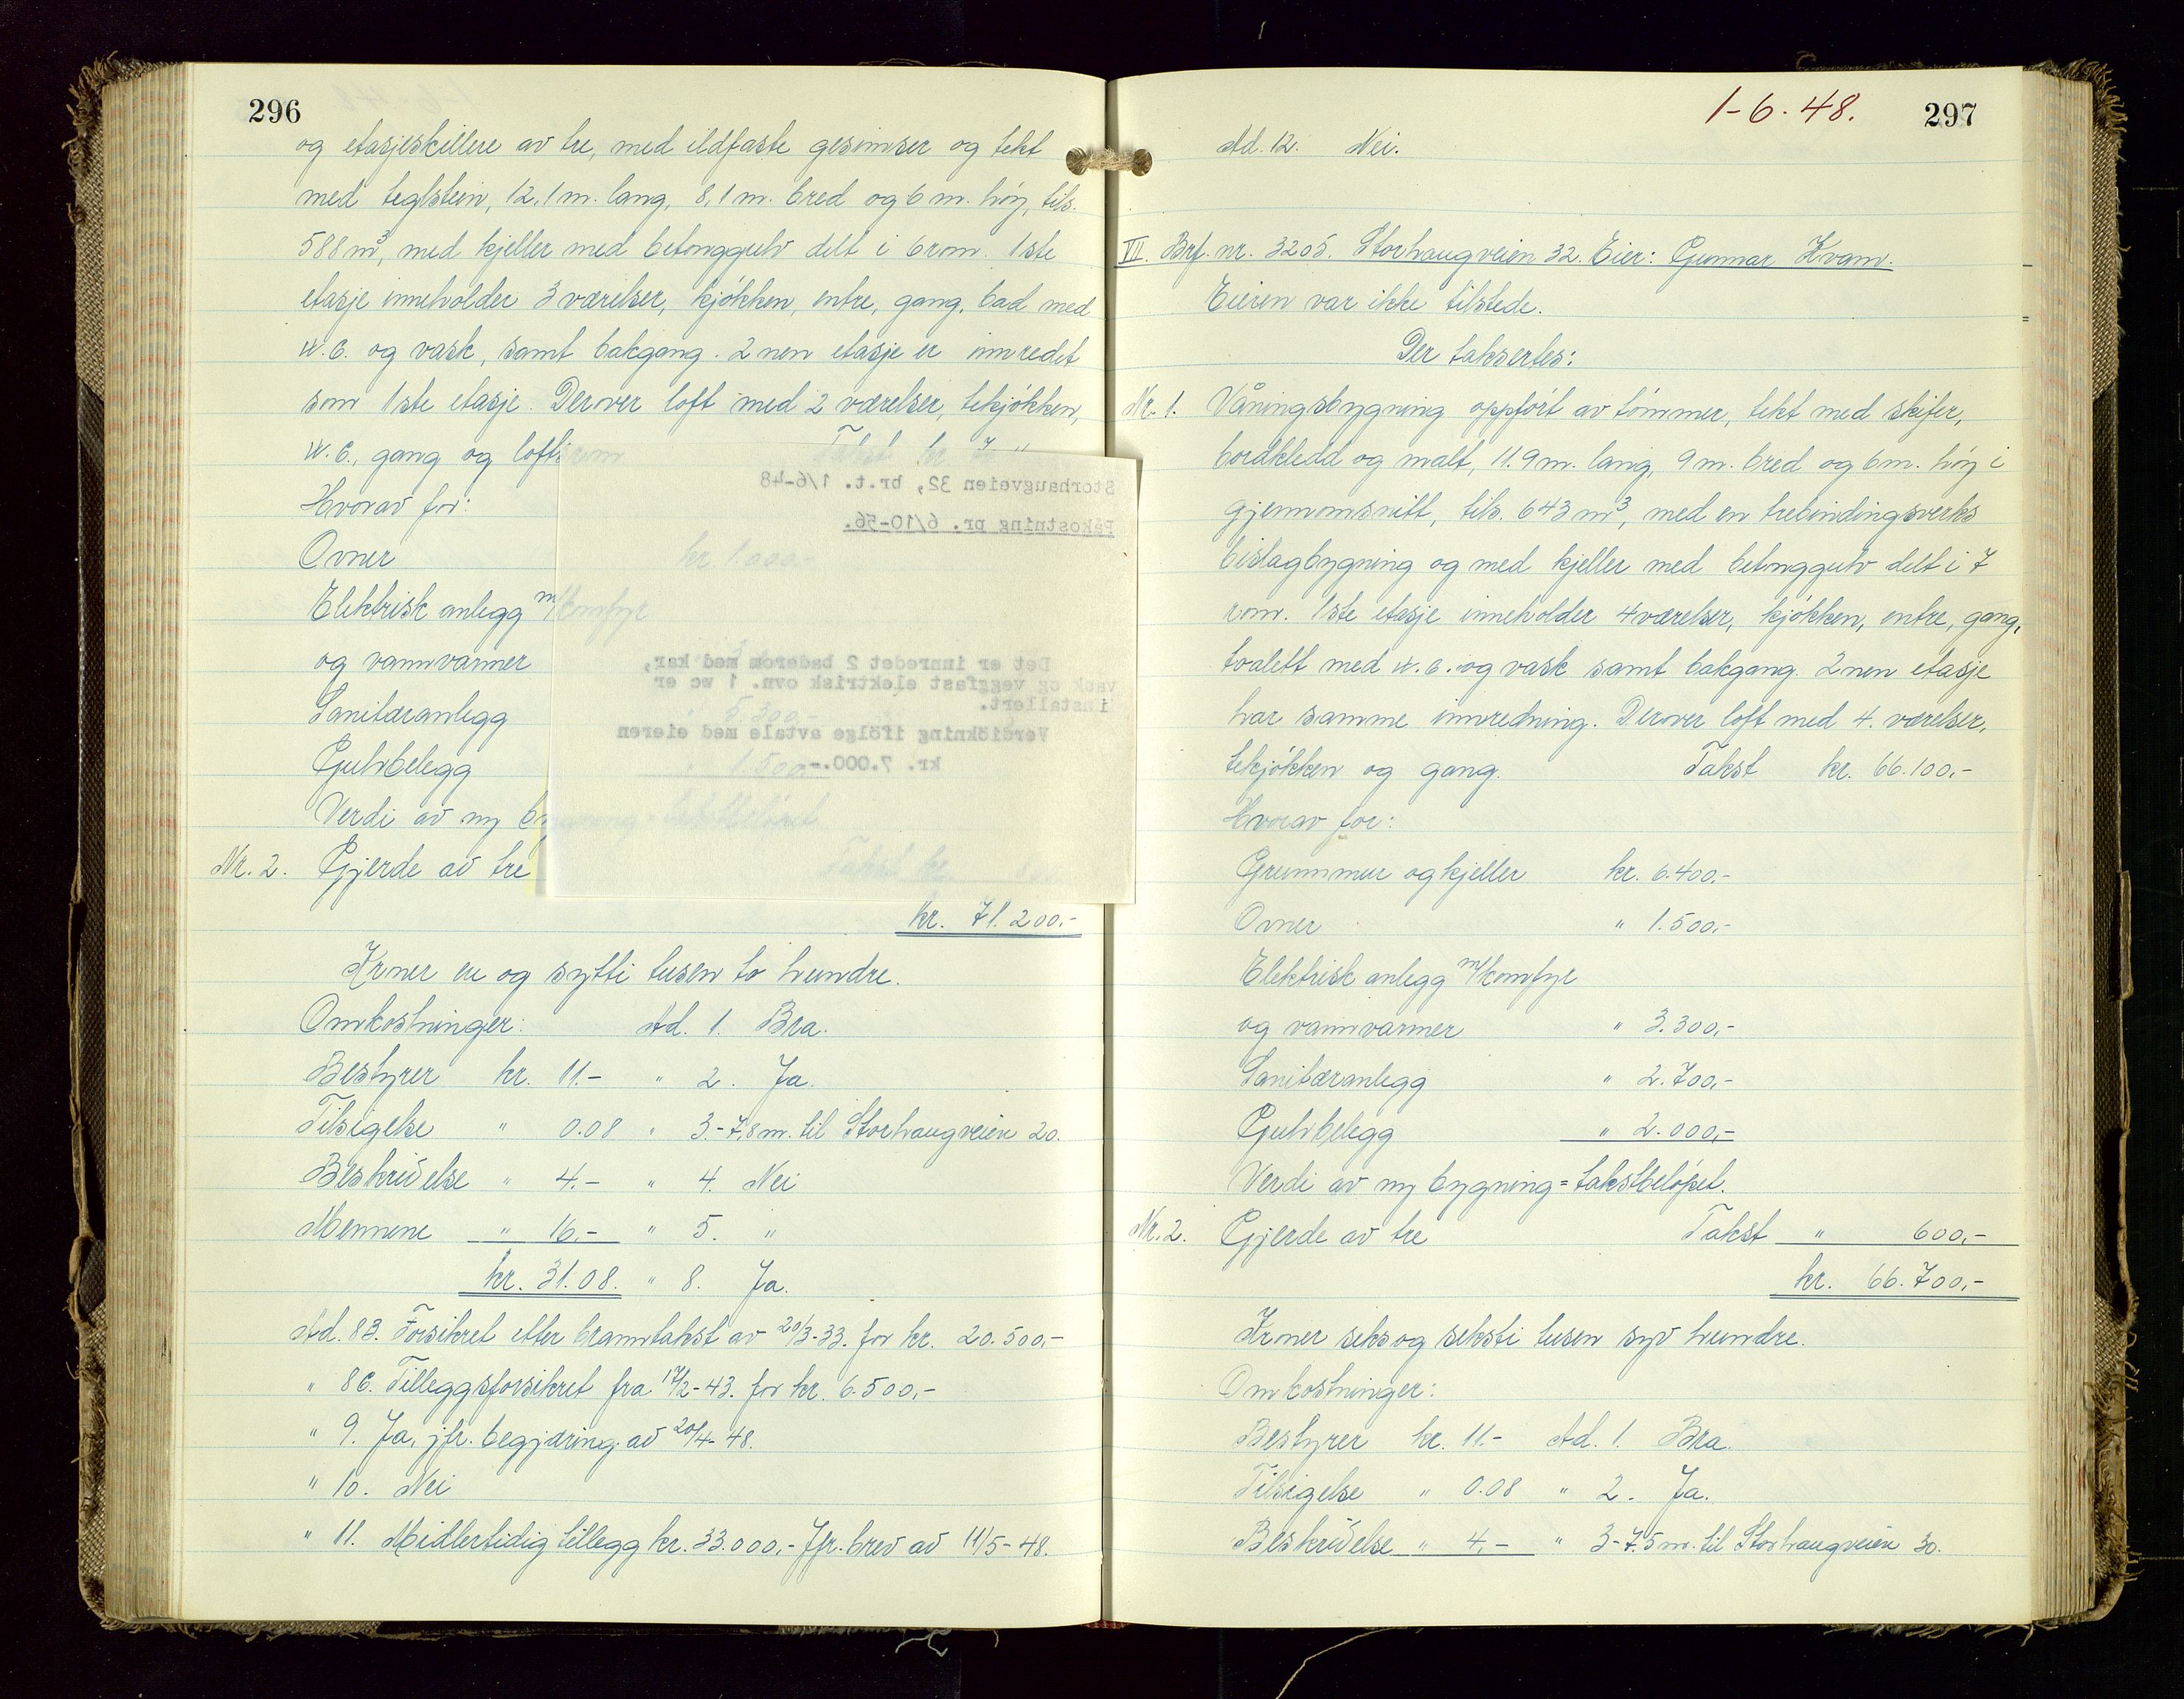 296
og etasjeskillere av tre, med ildfaste gesimser og tekt
med teglstein, 12,1 m. lang, 8,1 m. bred og 6 m. høy, tils.
588 m³, med kjeller med betonggulv delt i 6 rom. 1ste
etasje inneholder 3 værelser, kjøkken, entre, gang, bad med
w.c. og vask, samt bakgang. 2nen etasje er innredet
som 1ste etasje. Derover loft med 2 værelser, tekjøkken,
w.c., gang og loftsrom Takst kr.
Hvorav for:
Ovner kr. 1.000,-
Elektrisk anlegg m/komfyr
og vannvarmer
Sanitæranlegg " 5.300,-
Gulvbelegg " 1.500,-
Verdi av ny bygning = takstbeløpet
Nr. 2. Gjerde av tre Takst kr.
kr. 71.200.-
Kroner en og sytti tusen to hundre.
Omkostninger: Ad. 1. Bra.
Bestyrer kr. 11.- " 2. Ja.
Tilsigelse " 0.08 " 3.- 7,8 m. til Storhaugveien 20.
Beskrivelse " 4.- " 4. Nei
Mennene " 16.- " 5. "
kr. 31.08. " 8. Ja.
Ad. 8B. Forsikret etter branntakst av 20/3-33. for kr. 20.500,-
" 8C. Tilleggsforsikret fra 17/2-43. for kr. 6.500,-
" 9. Ja, jfr. begjæring av 20/4-48.
" 10. Nei
" 11. Midlertidig tillegg kr. 33.000,- Jfr. brev av 11/5-48.
Storhaugveien 32, br.t. 1/6-48
Påkostning pr. 6/10-56.
Det er innredet 2 baderom med kar,
vask og veggfast elektrisk ovn. 1 wc er
installert.
Verdiökning ifölge avtale med eieren
kr. 7.000.-
1-6.48. 297
Ad. 12. Nei.
VII. Brf. nr. 3205. Storhaugveien 32. Eier: Gunnar Kvam.
Eieren var ikke tilstede.
Der taksertes:
Nr. 1. Våningsbygning oppført av tømmer, tekt med skifer,
bordkledd og malt, 11.9 m. lang, 9 m. bred og 6 m. høy i
gjennomsnitt, tils. 643 m³, med en trebindingsverks
bislagbygning og med kjeller med betonggulv delt i 7
rom. 1ste etasje inneholder 4 værelser, kjøkken, entre, gang,
toalett med w.c. og vask samt bakgang. 2nen etasje
har samme innredning. Derover loft med 4. værelser,
tekjøkken og gang. Takst kr. 66.100,-
Hvorav for:
Grunnmur og kjeller kr. 6.400.-
Ovner " 1.500,-
Elektrisk anlegg m/komfyr
og vannvarmer " 3.300,-
Sanitæranlegg " 2.700,-
Gulvbelegg " 2.000,-
Verdi av ny bygning = takstbeløpet.
Nr. 2. Gjerde av tre Takst " 600,-
kr. 66.700,-
Kroner seks og seksti tusen syv hundre.
Omkostninger:
Bestyrer kr. 11.- Ad. 1. Bra.
Tilsigelse " 0.08 " 2. Ja.
Beskrivelse " 4.- " 3- 7.5 m. til Storhaugveien 30.